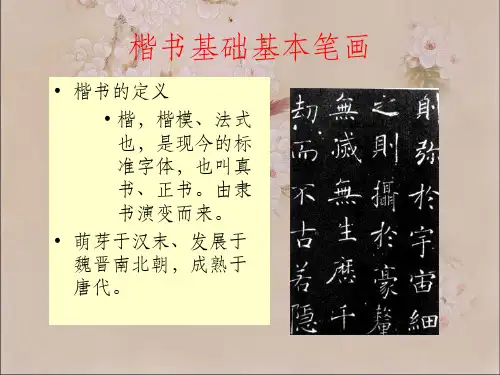 楷书基础基本笔画
• 楷书的定义
• 楷，楷模、法式
也，是现今的标
准字体，也叫真
书、正书。由隶
书演变而来。
• 萌芽于汉末、发展于
魏晋南北朝，成熟于
唐代。
則弥於宇宙細
之則攝於豪釐
無滅無生歷千
劫而不古若隱